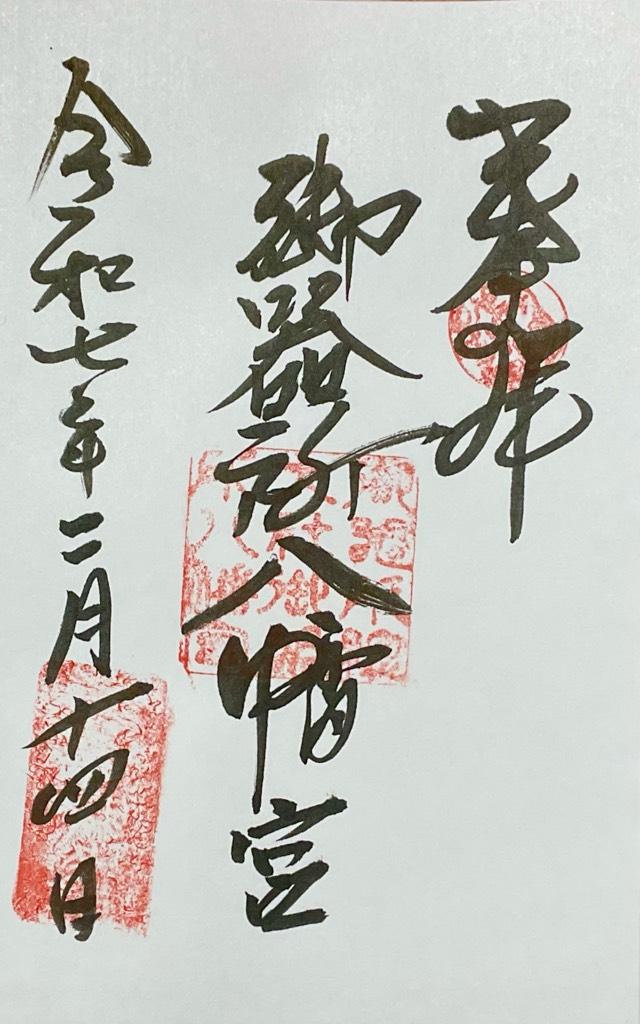 奉拝
御器所八幡宮
令和七年二月十四日